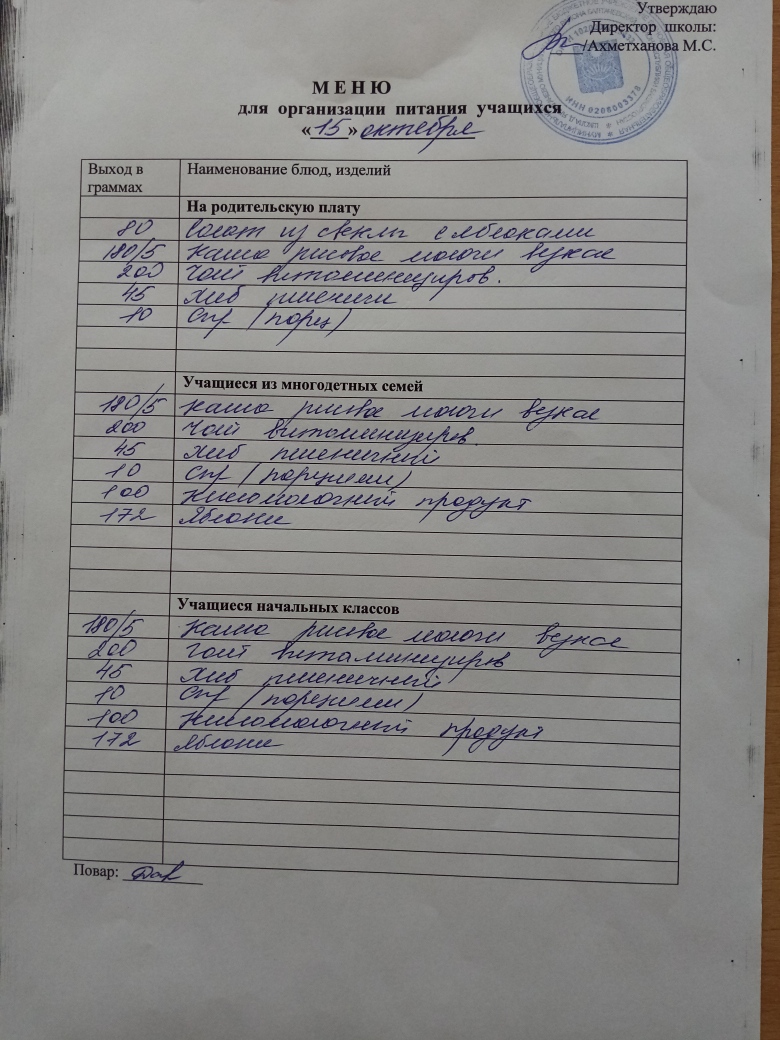 Утверждаю
Директор школы:
/Ахметханова М.С.
ИНН 0206003378
МЕНЮ
для организации питания учащихся
«15» октября
Выход в граммах Наименование блюд, изделий
На родительскую плату
80 Салат из свеклы с яблоками
180/5 Каша рисовая молочн вязкая
200 Чай витаминизиров.
45 Хлеб пшеничн
10 Сыр (порц)
Учащиеся из многодетных семей
180/5 Каша рисовая молочн вязкая
200 Чай витаминизиров.
45 Хлеб пшеничный
10 Сыр (порциями)
100 Кисломолочный продукт
172 Яблоки
Учащиеся начальных классов
180/5 Каша рисовая молочн вязкая
200 Чай витаминизиров
45 Хлеб пшеничный
10 Сыр (порциями)
100 Кисломолочный продукт
172 Яблоки
Повар: